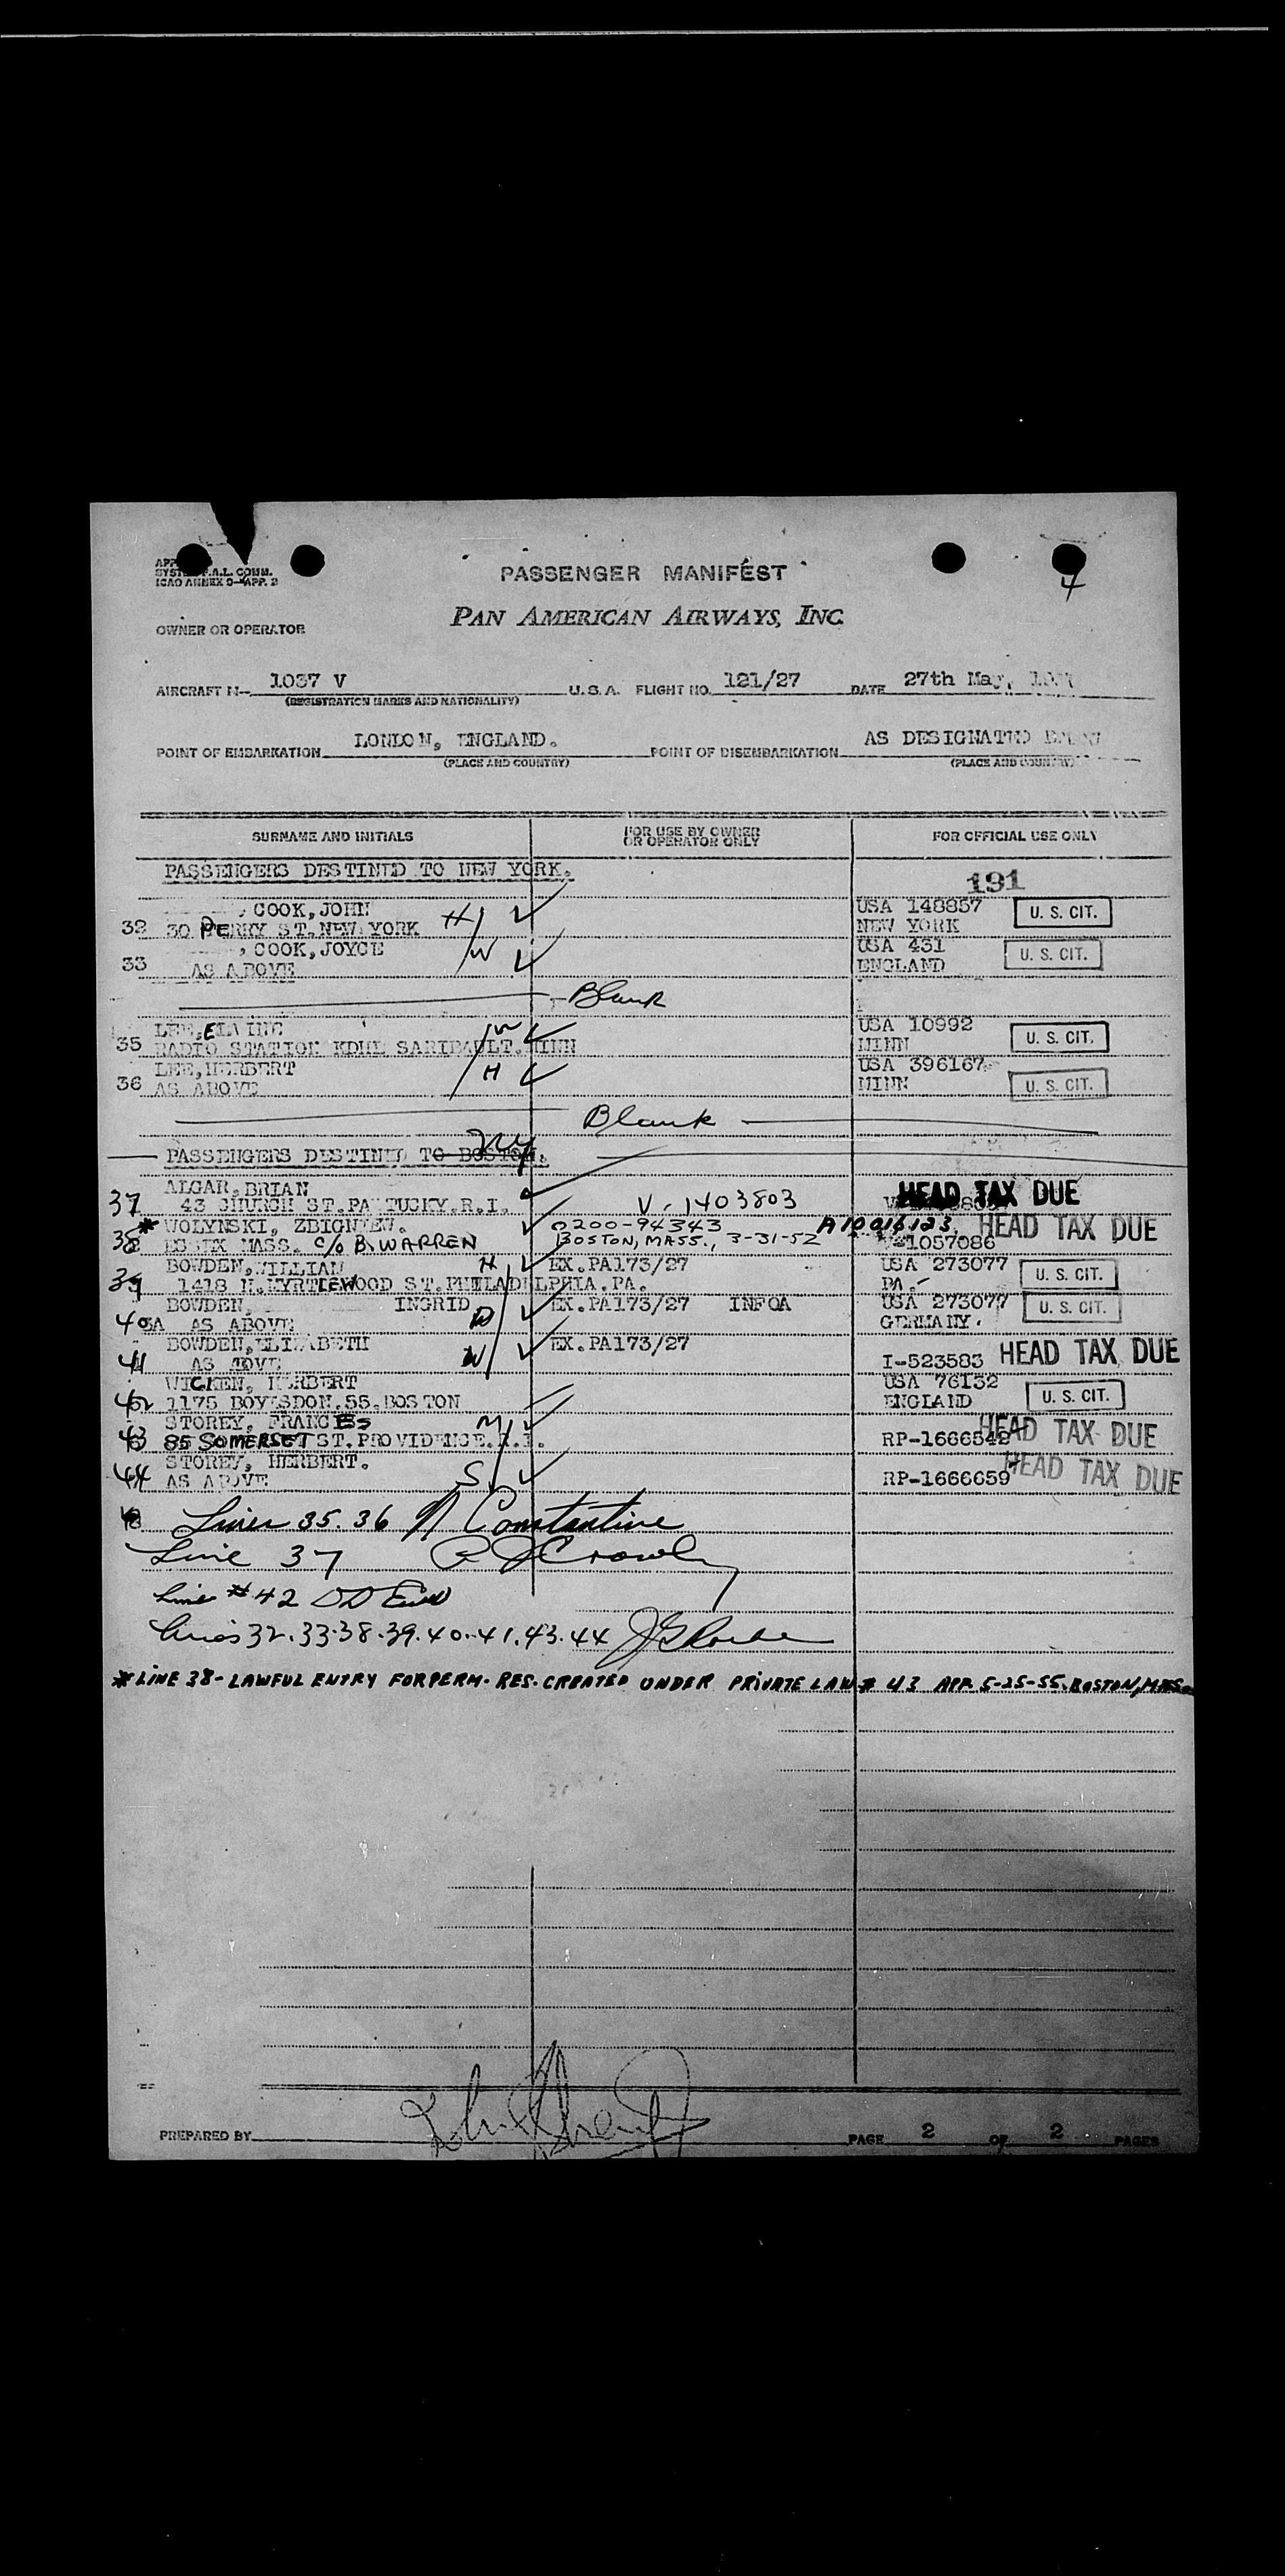 APP
SYST F.A.L. COMM.
ICAO ANNEX 9—APP. 3
PASSENGER MANIFEST
4
PAN AMERICAN AIRWAYS, INC
OWNER OR OPERATOR
AIRCRAFT N-- 1037 V U.S.A. FLIGHT NO. 121/27 DATE 27th May,
(REGISTRATION MARKS AND NATIONALITY)
POINT OF EMBARKATION LONDON, ENGLAND. POINT OF DISEMBARKATION AS DESIGNATED
(PLACE AND COUNTRY) (PLACE AND COUNTRY)
SURNAME AND INITIALS FOR USE BY OWNER OR OPERATOR ONLY FOR OFFICIAL USE ONLY
PASSENGERS DESTINED TO NEW YORK.
191
, COOK, JOHN USA 148857 U. S. CIT.
32 30 PERRY ST. NEW YORK H NEW YORK
, COOK, JOYCE W USA 431 U. S. CIT.
33 AS ABOVE ENGLAND
Blank
LEE, ELAINE W USA 10992 U. S. CIT.
35 RADIO STATION KDHL SARIBAULT. MINN MINN
LEE, HERBERT H USA 396167 U. S. CIT.
36 AS ABOVE MINN
Blank
NY
PASSENGERS DESTINED TO BOSTON.
ALGAR, BRIAN HEAD TAX DUE
37 43 CHURCH ST. PAWTUCKY. R.I. V-1403803
* WOLYNSKI, ZBIGNIEW. 0200-94343 A10016123 HEAD TAX DUE
38 ESSEX MASS. C/O B. WARREN BOSTON, MASS., 3-31-52 1057086
BOWDEN, WILLIAM H EX. PA173/27 USA 273077 U. S. CIT.
39 1418 N. MYRTLEWOOD ST. PHILADELPHIA. PA. PA.
BOWDEN, INGRID D EX. PA173/27 INFOA USA 273077 U. S. CIT.
40 AS ABOVE GERMANY.
BOWDEN, ELIZABETH W EX. PA173/27
41 AS ABOVE I-523583 HEAD TAX DUE
VICKEN, HERBERT USA 76132 U. S. CIT.
42 1175 BOYLSDON. SS. BOSTON ENGLAND
STOREY, FRANCES M HEAD TAX DUE
43 85 SOMERSET ST. PROVIDENCE. R.I. RP-1666542
STOREY, HERBERT. S HEAD TAX DUE
44 AS ABOVE RP-1666659
Lines 35. 36 N Constantine
Line 37 Crowley
Line #42
Lines 32. 33. 38. 39. 40. 41. 43. 44
*LINE 38-LAWFUL ENTRY FOR PERM. RES. CREATED UNDER PRIVATE LAW # 43 APP. 5-25-55. BOSTON, MASS.
PREPARED BY PAGE 2 OF 2 PAGES